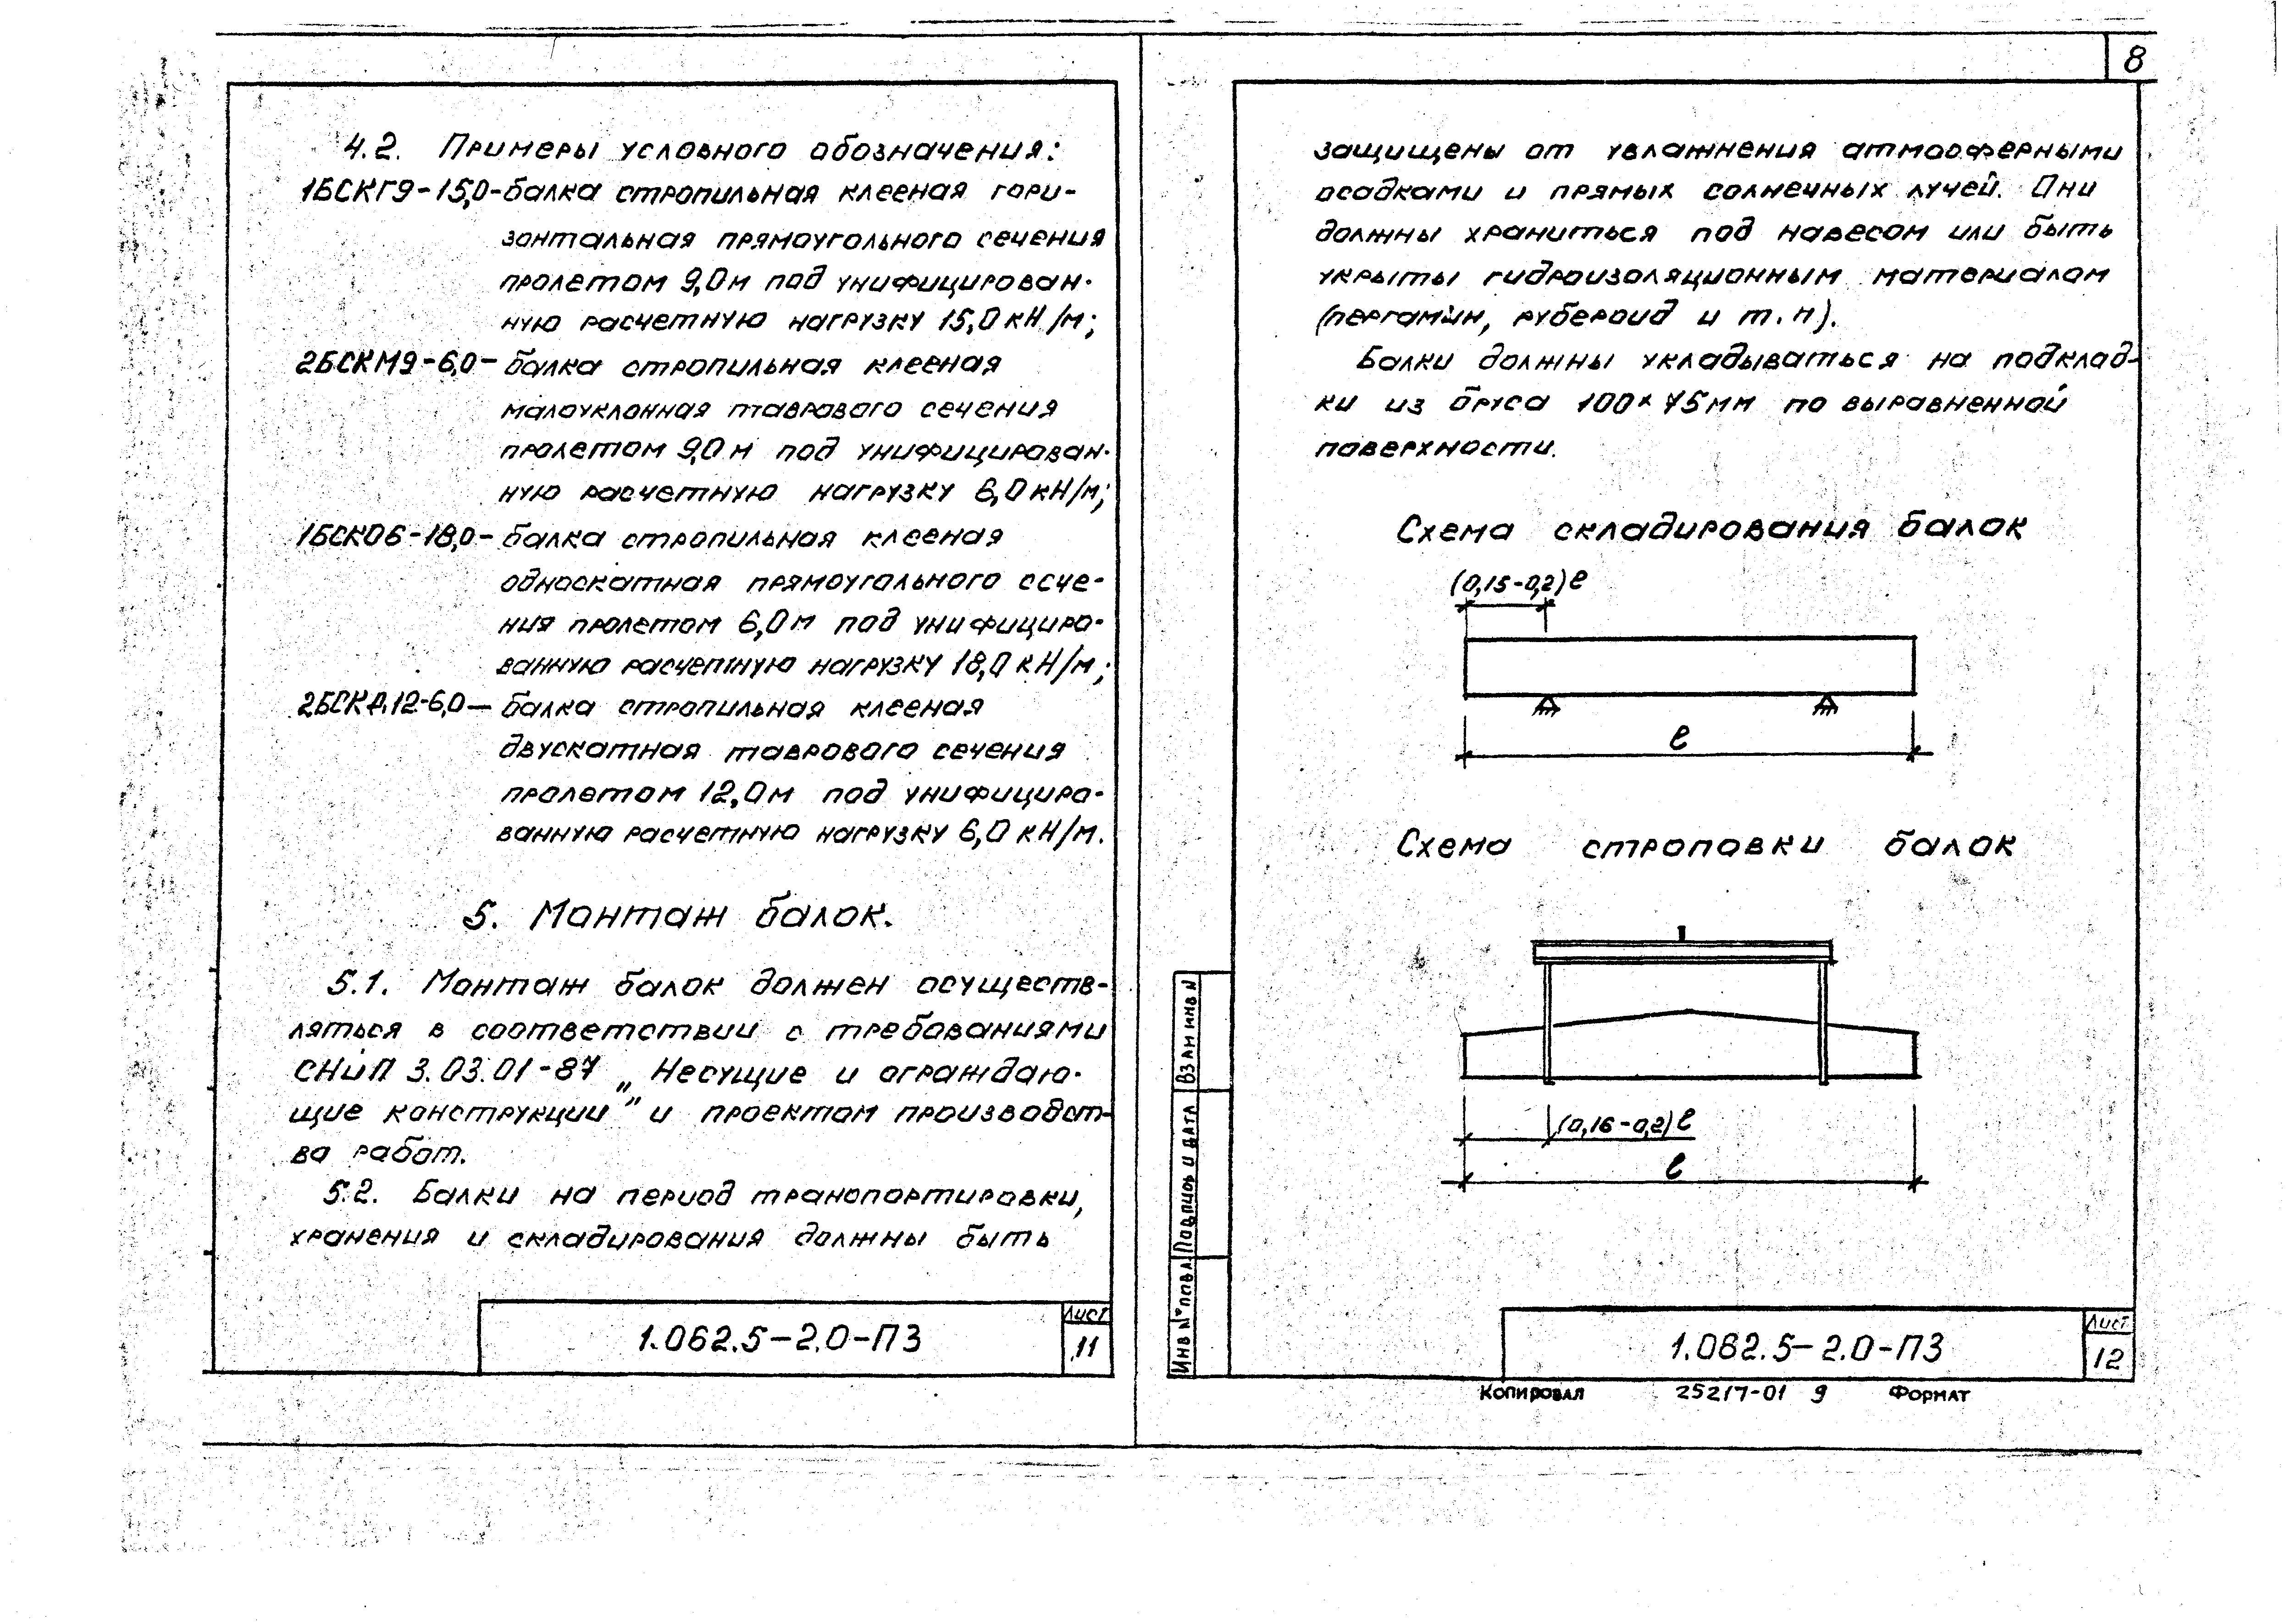 8
4.2. Примеры условного обозначения:
1БСКГ9-15,0-балка стропильная клееная гори-
зонтальная прямоугольного сечения
пролетом 9,0м под унифицирован-
ную расчетную нагрузку 15,0 кН/м;
2БСКМ9-6,0- балка стропильная клееная
малоуклонная таврового сечения
пролетом 9,0 м под унифицирован-
ную расчетную нагрузку 6,0 кН/м;
1БСКО6-18,0- балка стропильная клееная
односкатная прямоугольного сече-
ния пролетом 6,0м под унифициро-
ванную расчетную нагрузку 18,0 кН/м;
2БСКД12-6,0- балка стропильная клееная
двускатная таврового сечения
пролетом 12,0м под унифициро-
ванную расчетную нагрузку 6,0 кН/м.
5. Монтаж балок.
5.1. Монтаж балок должен осуществ-
ляться в соответствии с требованиями
СНиП 3.03.01-87 „Несущие и ограждаю-
щие конструкции" и проектом производст-
ва работ.
5.2. Балки на период транспортировки,
хранения и складирования должны быть
1.062.5-2.0-ПЗ
Лист
11
защищены от увлажнения атмосферными
осадками и прямых солнечных лучей. Они
должны храниться под навесом или быть
укрыты гидроизоляционным материалом
(пергамин, рубероид и т.п).
Балки должны укладываться на подклад-
ки из бруса 100×75мм по выравненной
поверхности.
Схема складирования балок
(0,15-0,2)ℓ
ℓ
Схема строповки балок
(0,16-0,2)ℓ
ℓ
Взам инв N
Подпись и дата
Инв N° подл.
1.062.5-2.0-ПЗ
Лист
12
Копировал 25217-01 9 Формат